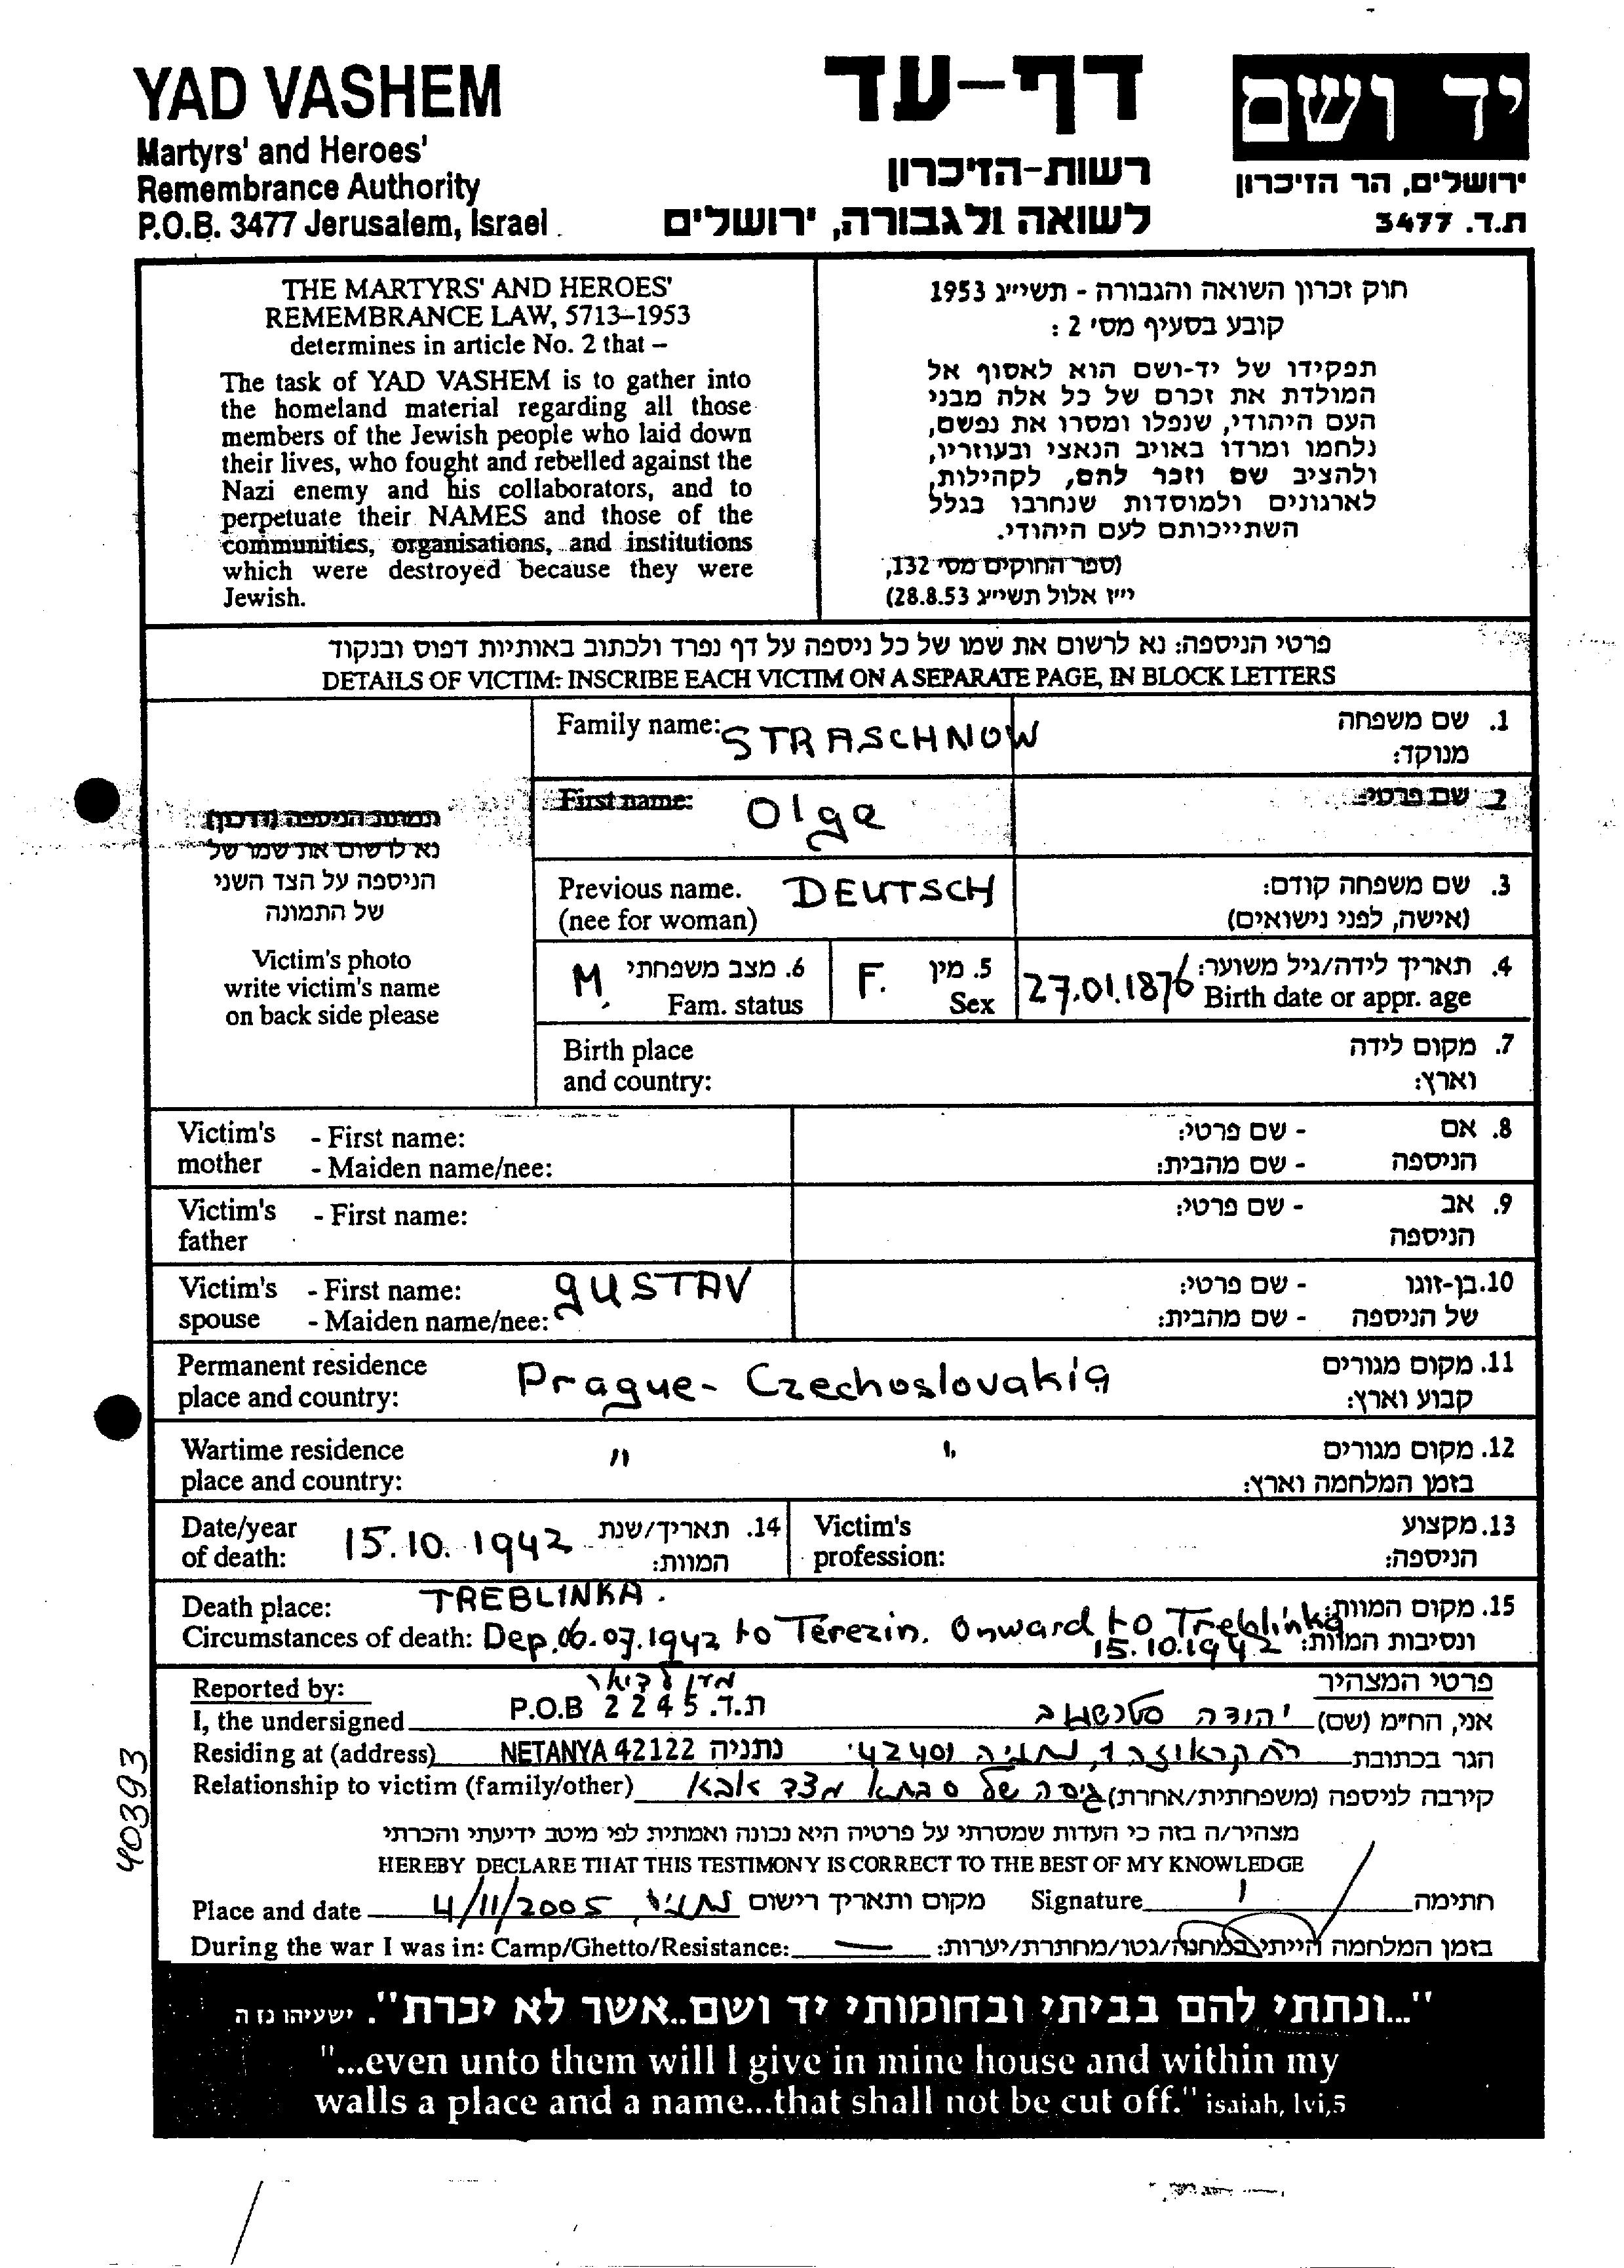 YAD VASHEM
Martyrs' and Heroes'
Remembrance Authority
P.O.B. 3477 Jerusalem, Israel
דף-עד
רשות-הזיכרון
לשואה ולגבורה, ירושלים
יד ושם
ירושלים, הר הזיכרון
ת.ד. 3477
THE MARTYRS' AND HEROES'
REMEMBRANCE LAW, 5713–1953
determines in article No. 2 that –
The task of YAD VASHEM is to gather into
the homeland material regarding all those
members of the Jewish people who laid down
their lives, who fought and rebelled against the
Nazi enemy and his collaborators, and to
perpetuate their NAMES and those of the
communities, organisations, and institutions
which were destroyed because they were
Jewish.
חוק זכרון השואה והגבורה - תשי״ג 1953
קובע בסעיף מס׳ 2 :
תפקידו של יד-ושם הוא לאסוף אל
המולדת את זכרם של כל אלה מבני
העם היהודי, שנפלו ומסרו את נפשם,
נלחמו ומרדו באויב הנאצי ובעוזריו,
ולהציב שם וזכר להם, לקהילות,
לארגונים ולמוסדות שנחרבו בגלל
השתייכותם לעם היהודי.
(ספר החוקים מס׳ 132,
י״ז אלול תשי״ג 28.8.53)
פרטי הניספה: נא לרשום את שמו של כל ניספה על דף נפרד ולכתוב באותיות דפוס ובנקוד
DETAILS OF VICTIM: INSCRIBE EACH VICTIM ON A SEPARATE PAGE, IN BLOCK LETTERS
תמונת הניספה (דרכון)
נא לרשום את שמו של
הניספה על הצד השני
של התמונה
Victim's photo
write victim's name
on back side please
Family name: STRASCHNOW 1. שם משפחה
מנוקד:
First name: Olga 2. שם פרטי:
Previous name. DEUTSCH 3. שם משפחה קודם:
(nee for woman) (אישה, לפני נישואים)
M. 6. מצב משפחתי F. 5. מין 27.01.1876 4. תאריך לידה/גיל משוער:
Fam. status Sex Birth date or appr. age
Birth place 7. מקום לידה
and country: וארץ:
Victim's - First name: - שם פרטי: 8. אם
mother - Maiden name/nee: - שם מהבית: הניספה
Victim's - First name: - שם פרטי: 9. אב
father הניספה
Victim's - First name: GUSTAV - שם פרטי: 10. בן-זוגו
spouse - Maiden name/nee: - שם מהבית: של הניספה
Permanent residence Prague - Czechoslovakia 11. מקום מגורים
place and country: קבוע וארץ:
Wartime residence " " 12. מקום מגורים
place and country: בזמן המלחמה וארץ:
Date/year 15.10.1942 14. תאריך/שנת Victim's 13. מקצוע
of death: המוות: profession: הניספה:
Death place: TREBLINKA. 15. מקום המוות:
Circumstances of death: Dep. 06.07.1942 to Terezin. Onward to Treblinka 15.10.1942 ונסיבות המוות:
Reported by: פרטי המצהיר
I, the undersigned P.O.B 2245 ת.ד. יהודה אני, הח״מ (שם)
Residing at (address) NETANYA 42122 נתניה נתניה 42401 הגר בכתובת
Relationship to victim (family/other) גיסה של סבתא מצד אבא קירבה לניספה (משפחתית/אחרת)
מצהיר/ה בזה כי העדות שמסרתי על פרטיה היא נכונה ואמתית לפי מיטב ידיעתי והכרתי
HEREBY DECLARE THAT THIS TESTIMONY IS CORRECT TO THE BEST OF MY KNOWLEDGE
Place and date 4/11/2005 נתניה, מקום ותאריך רישום Signature חתימה
During the war I was in: Camp/Ghetto/Resistance: — בזמן המלחמה הייתי במחנה/גטו/מחתרת/יערות:
40393
"...ונתתי להם בביתי ובחומותי יד ושם..אשר לא יכרת". ישעיהו נו ה
"...even unto them will I give in mine house and within my
walls a place and a name...that shall not be cut off." isaiah, lvi,5